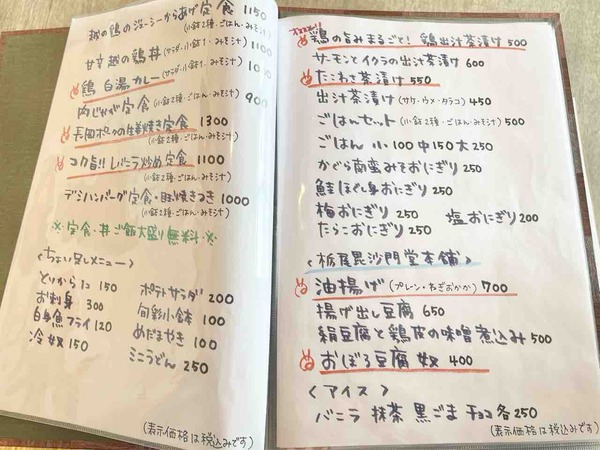 越の鶏のジューシーからあげ定食 1150
(小鉢2種・ごはん・みそ汁)
甘辛越の鶏丼 (サラダ・小鉢1・みそ汁) 1100
鶏白湯カレー (サラダ・小鉢1・みそ汁)
肉じゃが定食 (小鉢2種・ごはん・みそ汁) 900
長岡ポークの生姜焼き定食 1300
(小鉢2種・ごはん・みそ汁)
コク旨!! レバニラ炒め定食 1100
(小鉢2種・ごはん・みそ汁)
デミハンバーグ定食・目玉焼きつき 1000
(小鉢2種・ごはん・みそ汁)
※定食・丼ご飯大盛り無料※
<ちょい足しメニュー>
とりから1コ 150
お刺身 300
白身魚フライ 120
冷奴 150
ポテトサラダ 200
旬彩小鉢 100
めだまやき 100
ミニうどん 250
(表示価格は税込みです)
オススメ!!
鶏の旨みまるごと! 鶏出汁茶漬け 500
サーモンとイクラの出汁茶漬け 600
たこわさ茶漬け 550
出汁茶漬け (サケ・ウメ・タラコ) 450
ごはんセット (小鉢2種・ごはん・みそ汁) 500
ごはん 小100 中150 大250
かぐら南蛮みそおにぎり 250
鮭ほぐし身おにぎり 250
梅おにぎり 250 塩おにぎり 200
たらこおにぎり 250
<栃尾毘沙門堂本舗>
油揚げ (プレーン・ねぎおかか) 700
揚げ出し豆腐 650
絹豆腐と鶏皮の味噌煮込み 500
おぼろ豆腐 奴 400
<アイス>
バニラ 抹茶 黒ごま チョコ 各250
(表示価格は税込みです)